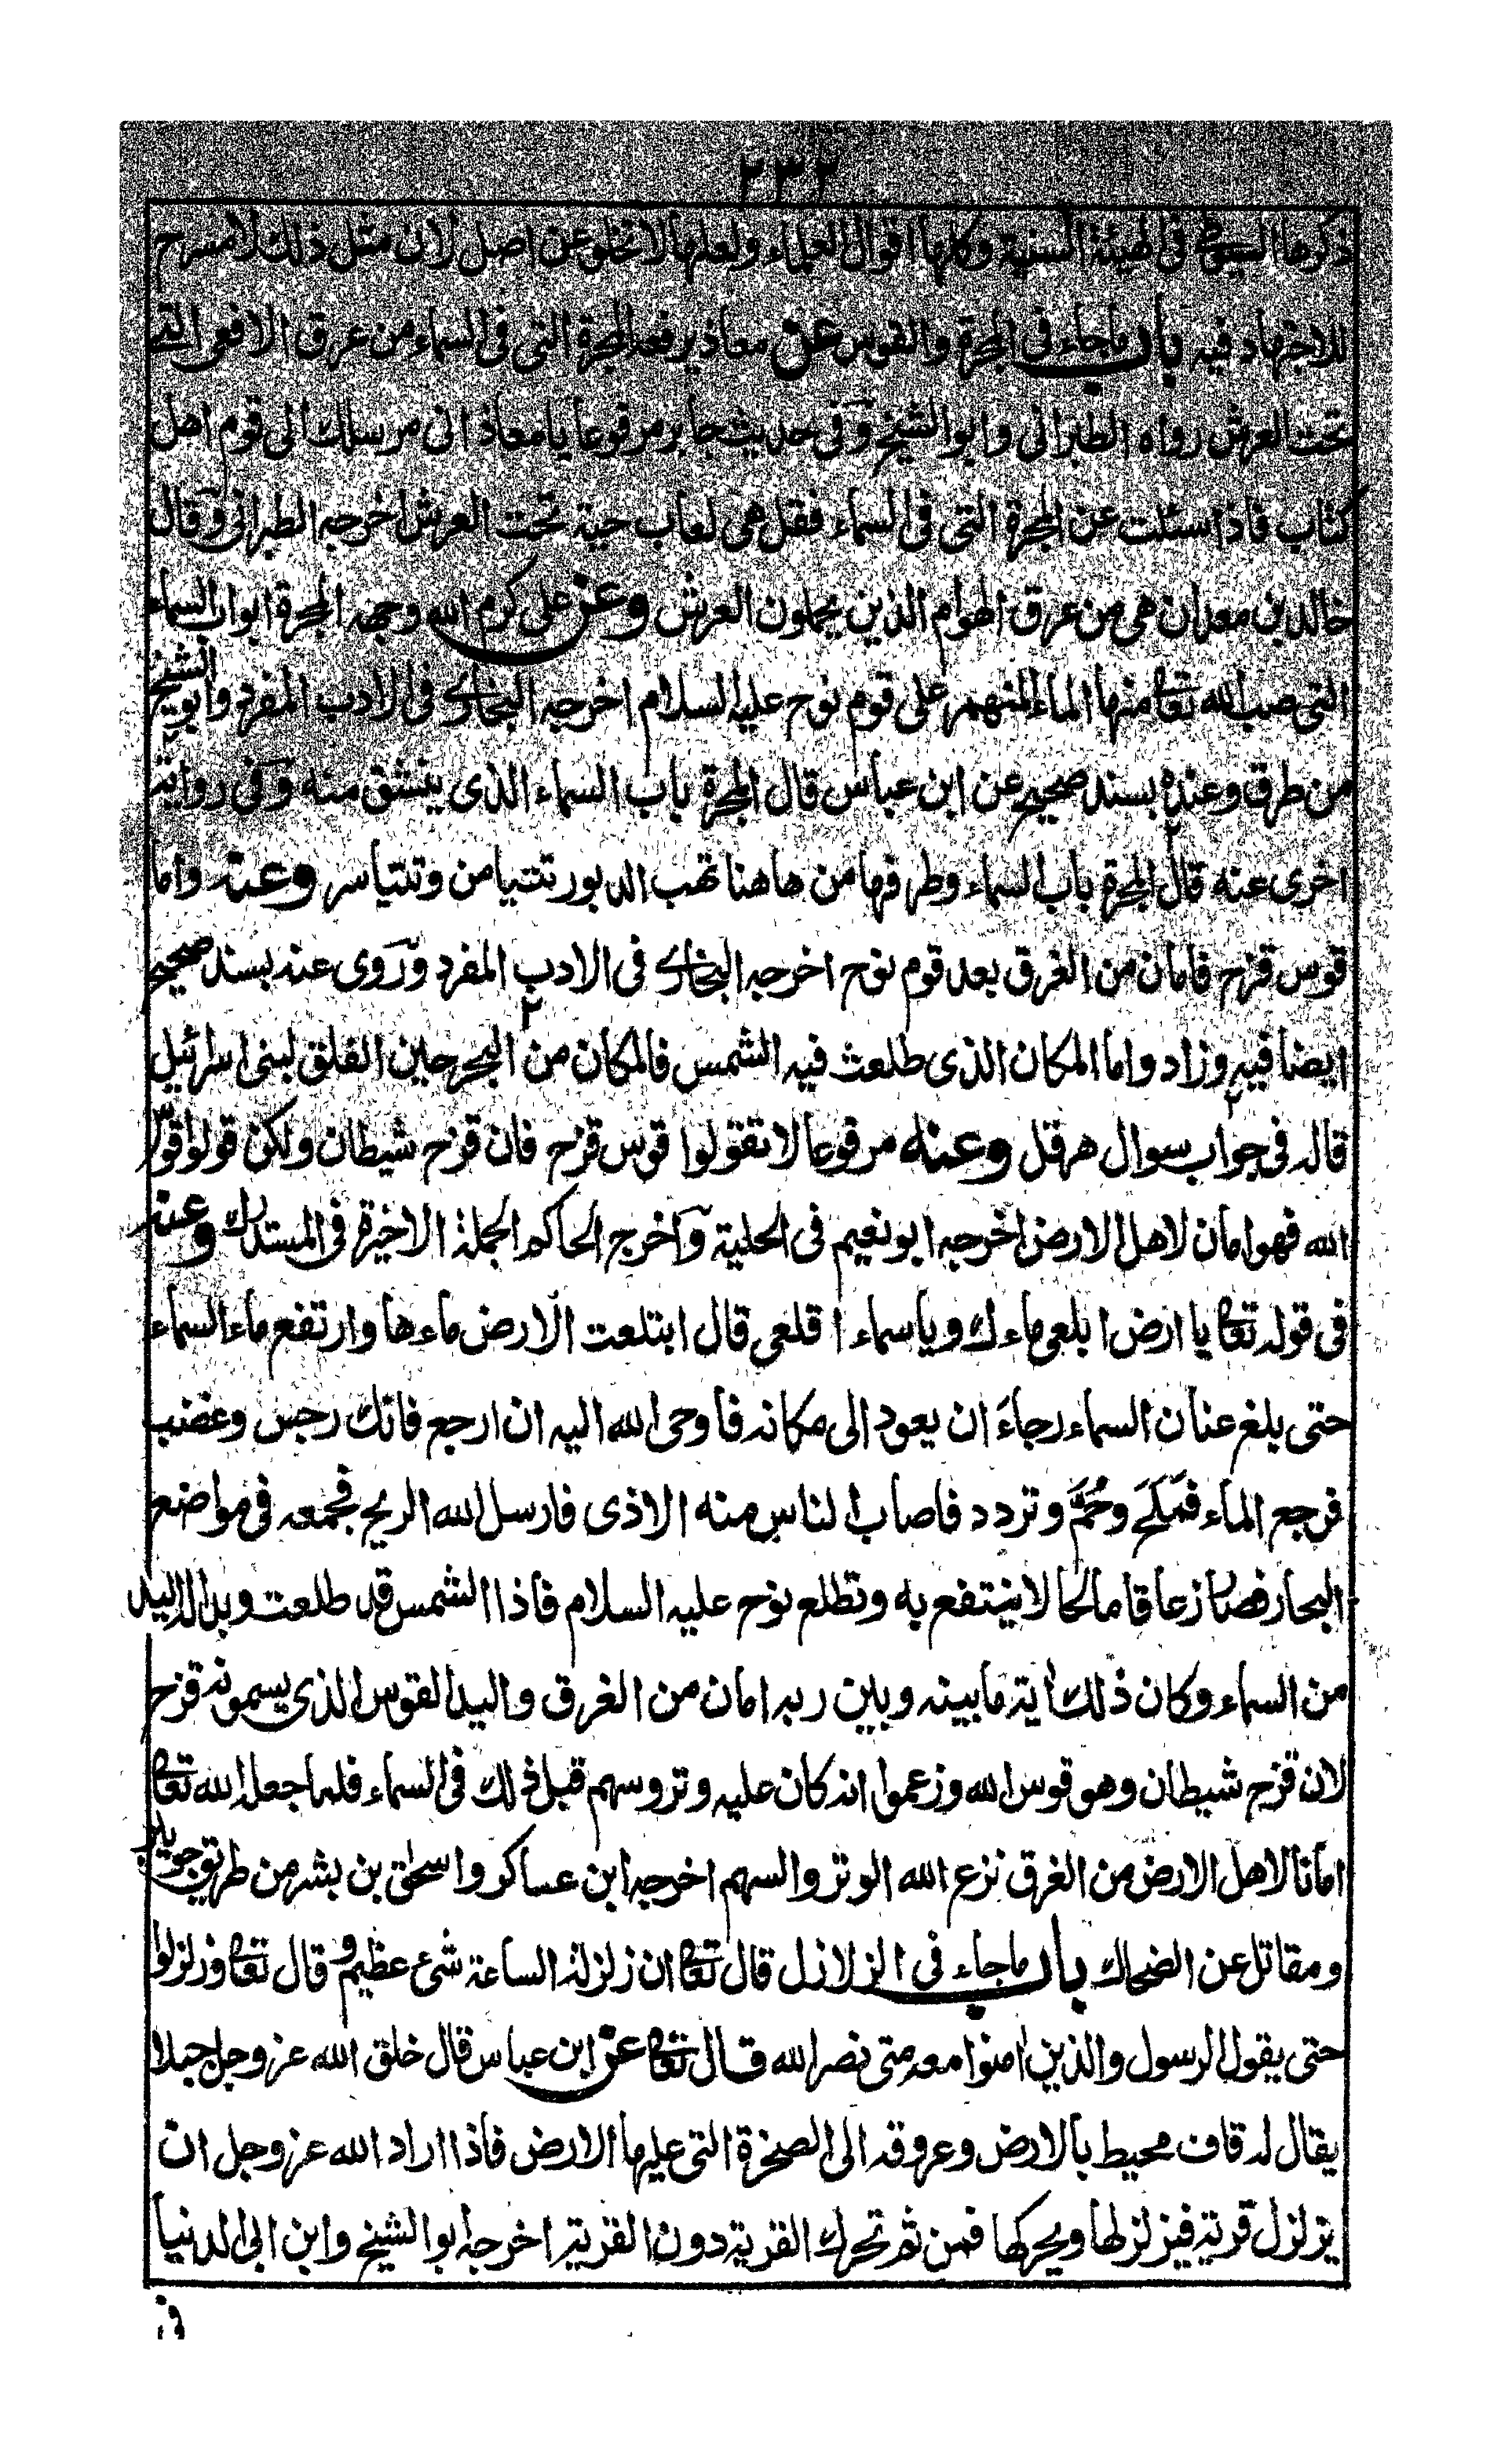 ٢٣٢
ذكرها السيوطي في الهيئة السنية وكلها اقوال العلماء ولعلها لا تخلو عن اصل لان مثل ذلك لا مسرح
للاجتهاد فيه باب ماجاء في المجرة والقوس عن معاذ يرفعه المجرة التي في السماء من عرق الافعى التي
تحت العرش رواه الطبراني وابو الشيخ وفي حديث جابر مرفوعا يا معاذ اني مرسلك الى قوم اهل
كتاب فاذا سئلت عن المجرة التي في السماء فقل هي لعاب حية تحت العرش اخرجه الطبراني وقال
خالد بن معدان هي من عرق الهوام الذين يحملون العرش وعن علي كرم الله وجهه المجرة ابواب السماء
التي صب الله تعا منها الماء المنهمر على قوم نوح عليه السلام اخرجه البخاري في الادب المفرد وابو الشيخ
من طرق وعنده بسند صحيح عن ابن عباس قال المجرة باب السماء الذي ينشق منه وفي رواية
اخرى عنه قال المجرة باب السماء وطرفها من هاهنا تهب الدبور تتيامن وتتياسر وعنه واما
قوس قزح فامان من الغرق بعد قوم نوح اخرجه البخاري في الادب المفرد وروى عنه بسند صحيح
ايضا فيه وزاد واما المكان الذي طلعت فيه الشمس فالمكان من البحر حين انفلق لبني اسرائيل
قاله في جواب سوال هرقل وعنه مرفوعا لا تقولوا قوس قزح فان قزح شيطان ولكن قولوا قوس
الله فهو امان لاهل الارض اخرجه ابو نعيم في الحلية وآخرج الحاكم الجملة الاخيرة في المستدرك وعنه
في قوله تعا يا ارض ابلعي ماءك ويا سماء اقلعي قال ابتلعت الارض ماءها وارتفع ماء السماء
حتى بلغ عنان السماء رجاء ان يعود الى مكانه فاوحى الله اليه ان ارجع فانك رجس وغضب
فرجع الماء فملح وحم وتردد فاصاب الناس منه الاذى فارسل الله الريح فجمعه في مواضع
البحار فصار زعاقا مالحا لا ينتفع به وتطلع نوح عليه السلام فاذا الشمس قد طلعت وبدا له اليد
من السماء وكان ذلك اية ما بينه وبين ربه امان من الغرق واليد القوس الذي يسمونه قزح
لان قزح شيطان وهو قوس الله وزعموا انه كان عليه وتر وسهم قبل ذلك في السماء فلما جعله الله تعا
امانا لاهل الارض من الغرق نزع الله الوتر والسهم اخرجه ابن عساكر واسحق بن بشر من طريق جويبر
ومقاتل عن الضحاك باب ماجاء في الزلازل قال تعا ان زلزلة الساعة شئ عظيم وقال تعا وزلزلوا
حتى يقول الرسول والذين امنوا معه متى نصر الله قال تعا عن ابن عباس قال خلق الله عز وجل جبلا
يقال له قاف محيط بالارض وعروقه الى الصخرة التي عليها الارض فاذا اراد الله عز وجل ان
يزلزل قرية فيزلزلها ويحركها فمن ثم تحرك القرية دون القرية اخرجه ابو الشيخ وابن ابي الدنيا
في